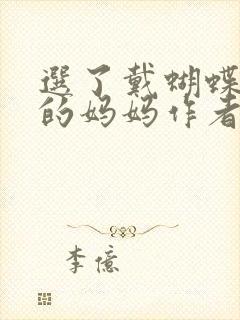 選了戴蝴蝶
的妈妈作者
李億